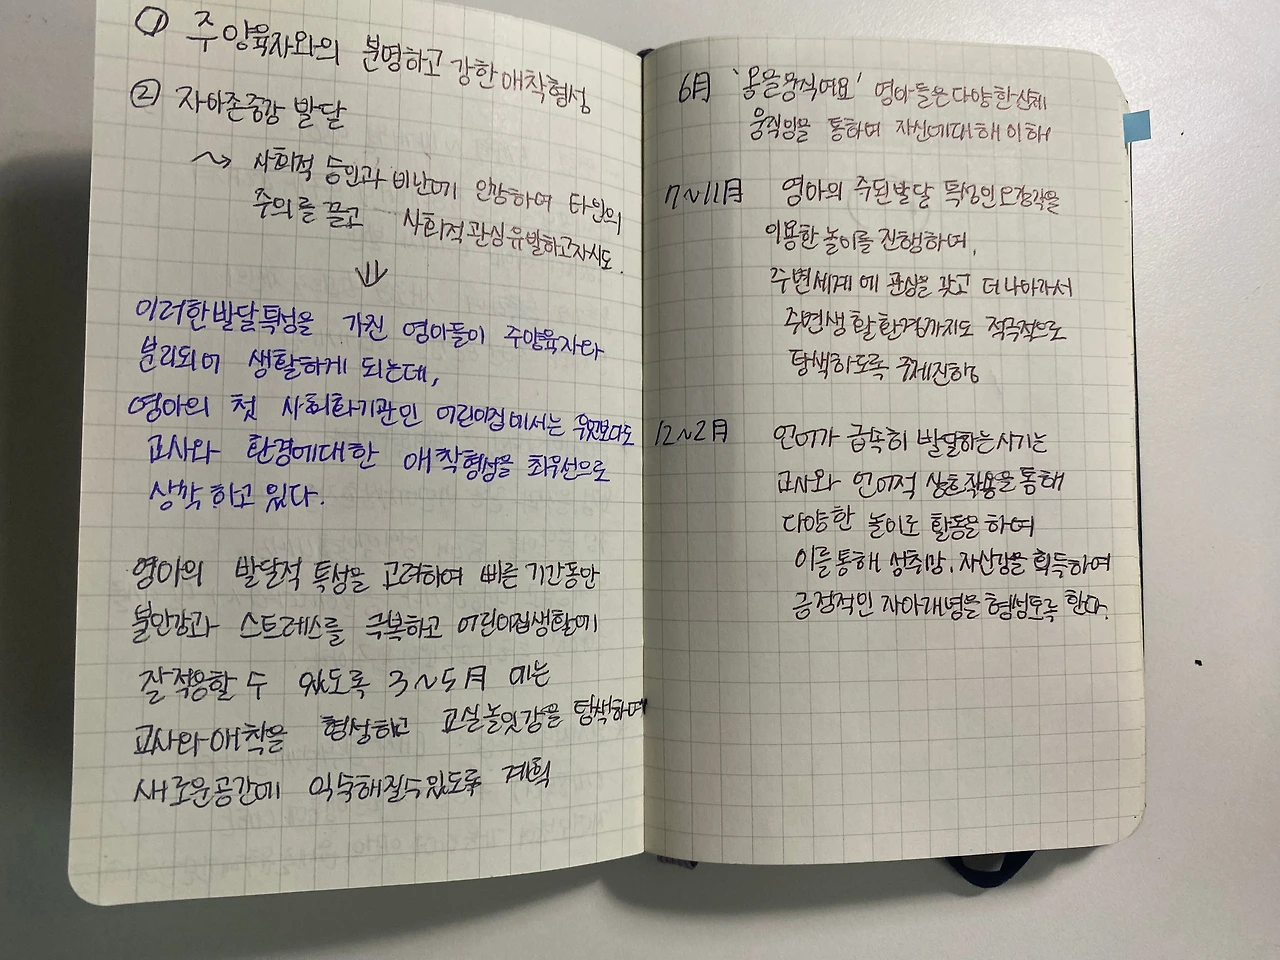 ① 주양육자와의 분명하고 강한 애착형성
② 자아존중감 발달
~> 사회적 승인과 비난에 민감하여 타인의
주의를 끌고 사회적 관심 유발하고자시도.
⇓
이러한 발달특성을 가진 영아들이 주양육자와
분리되어 생활하게 되는데,
영아의 첫 사회화기관인 어린이집에서는 무엇보다도
교사와 환경에대한 애착형성을 최우선으로
생각하고 있다.
영아의 발달적 특성을 고려하여 빠른 기간동안
불안감과 스트레스를 극복하고 어린이집생활에
잘적응할 수 있도록 3~5月 에는
교사와 애착을 형성하고 교실놀잇감을 탐색하며
새로운공간에 익숙해질수있도록 계획
6月 '몸을움직여요' 영아들은다양한신체
움직임을 통하여 자신에대해 이해
7~11月 영아의 주된발달 특성인오감각을
이용한 놀이를 진행하며,
주변세계에 관심을 갖고 더 나아가서
주변생활환경까지도 적극적으로
탐색하도록 주제진행
12~2月 언어가 급속히 발달하는시기는
교사와 언어적 상호작용을통해
다양한 놀이로 활동을 하여
이를통해 성취감. 자신감을 획득하여
긍정적인 자아개념을 형성토록 한다.